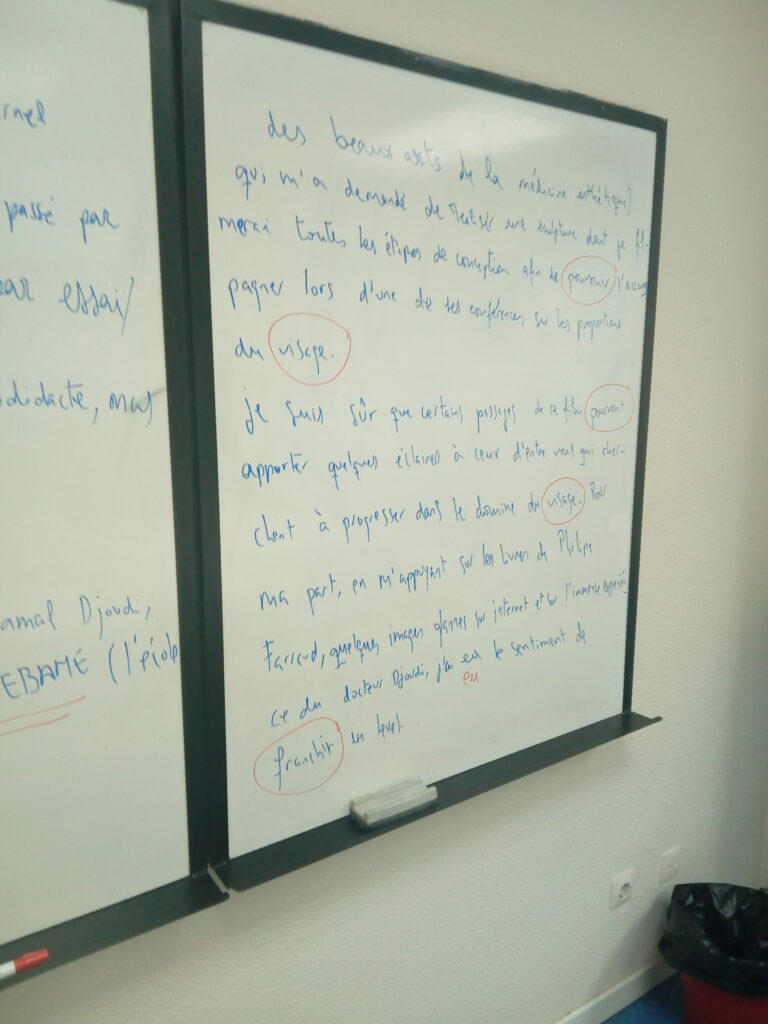 rnel
passé par
par essai/
didacte, mais
amal Djoudi,
EBAMÉ (l'école
des beaux arts de la médicine esthétique)
qui m'a demandé de réaliser une sculpture dont je fil-
merai toutes les étapes de conception afin de pouvoir l'accom
pagner lors d'une de ses conférences sur les proportions
du visage.
je suis sûr que certains passages de ce film pourront
apporter quelques éclaires à ceux d'entre vous qui cher-
chent à progresser dans le domine du visage. Pour
ma part, en m'appuyant sur les livres de Philipe
Farraud, quelques images glannés sur internet et sur l'immense expérien
ce du docteur Djoudi, j'ai eu le sentiment de
eu
franchir un level.